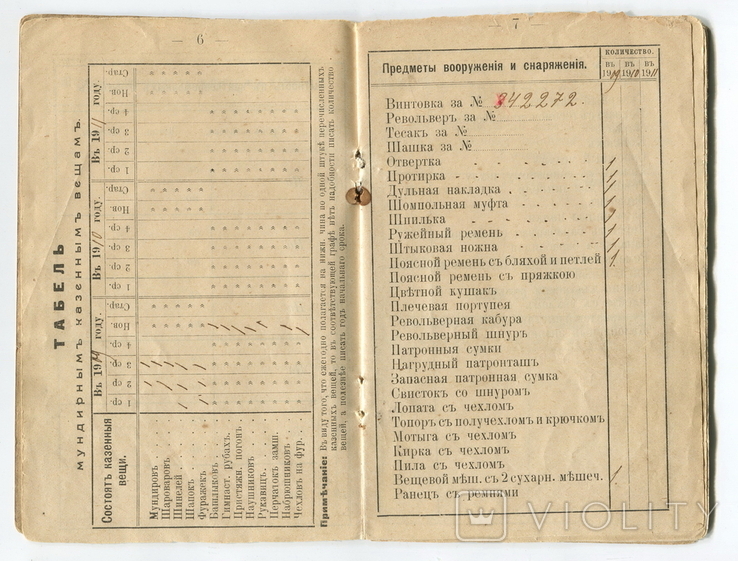 — 6 —
ТАБЕЛЬ
мундирнымъ казеннымъ вещамъ.
Состоятъ казенныя вещи.
Въ 19 году.
1 ср.
2 ср.
3 ср.
4 ср.
Нов.
Стар.
Въ 1910 году.
1 ср.
2 ср.
3 ср.
4 ср.
Нов.
Стар.
Въ 1911 году.
1 ср.
2 ср.
3 ср.
4 ср.
Нов.
Стар.
Мундировъ
Шароваровъ
Шинелей
Шапокъ
Фуражекъ
Башлыковъ
Гимнаст. рубах.
Пристяжн. погон.
Наушниковъ
Рукавицъ.
Перчатокъ замш.
Набрюшниковъ
Чехловъ на фур.
Примѣчаніе: Въ виду того, что ежегодно полагается на нижн. чина по одной штукѣ перечисленныхъ
казенныхъ вещей, то въ соотвѣтствующей графѣ нѣтъ надобности писать количество
вещей, а полезнѣе писать годъ начальнаго срока.
— 7 —
Предметы вооруженія и снаряженія.
КОЛИЧЕСТВО.
ВЪ ВЪ ВЪ
1909 1910 1911
Винтовка за № 342272.
Револьверъ за №
Тесакъ за №
Шашка за №
Отвертка
Протирка
Дульная накладка
Шомпольная муфта
Шпилька
Ружейный ремень
Штыковая ножна
Поясной ремень съ бляхой и петлей
Поясной ремень съ пряжкою
Цвѣтной кушакъ
Плечевая портупея
Револьверная кабура
Револьверный шнуръ
Патронныя сумки
Нагрудный патронташъ
Запасная патронная сумка
Свистокъ со шнуромъ
Лопата съ чехломъ
Топоръ съ получехломъ и крючкомъ
Мотыга съ чехломъ
Кирка съ чехломъ
Пила съ чехломъ
Вещевой мѣш. съ 2 сухарн. мѣшеч.
Ранецъ съ ремнями
VIOLITY